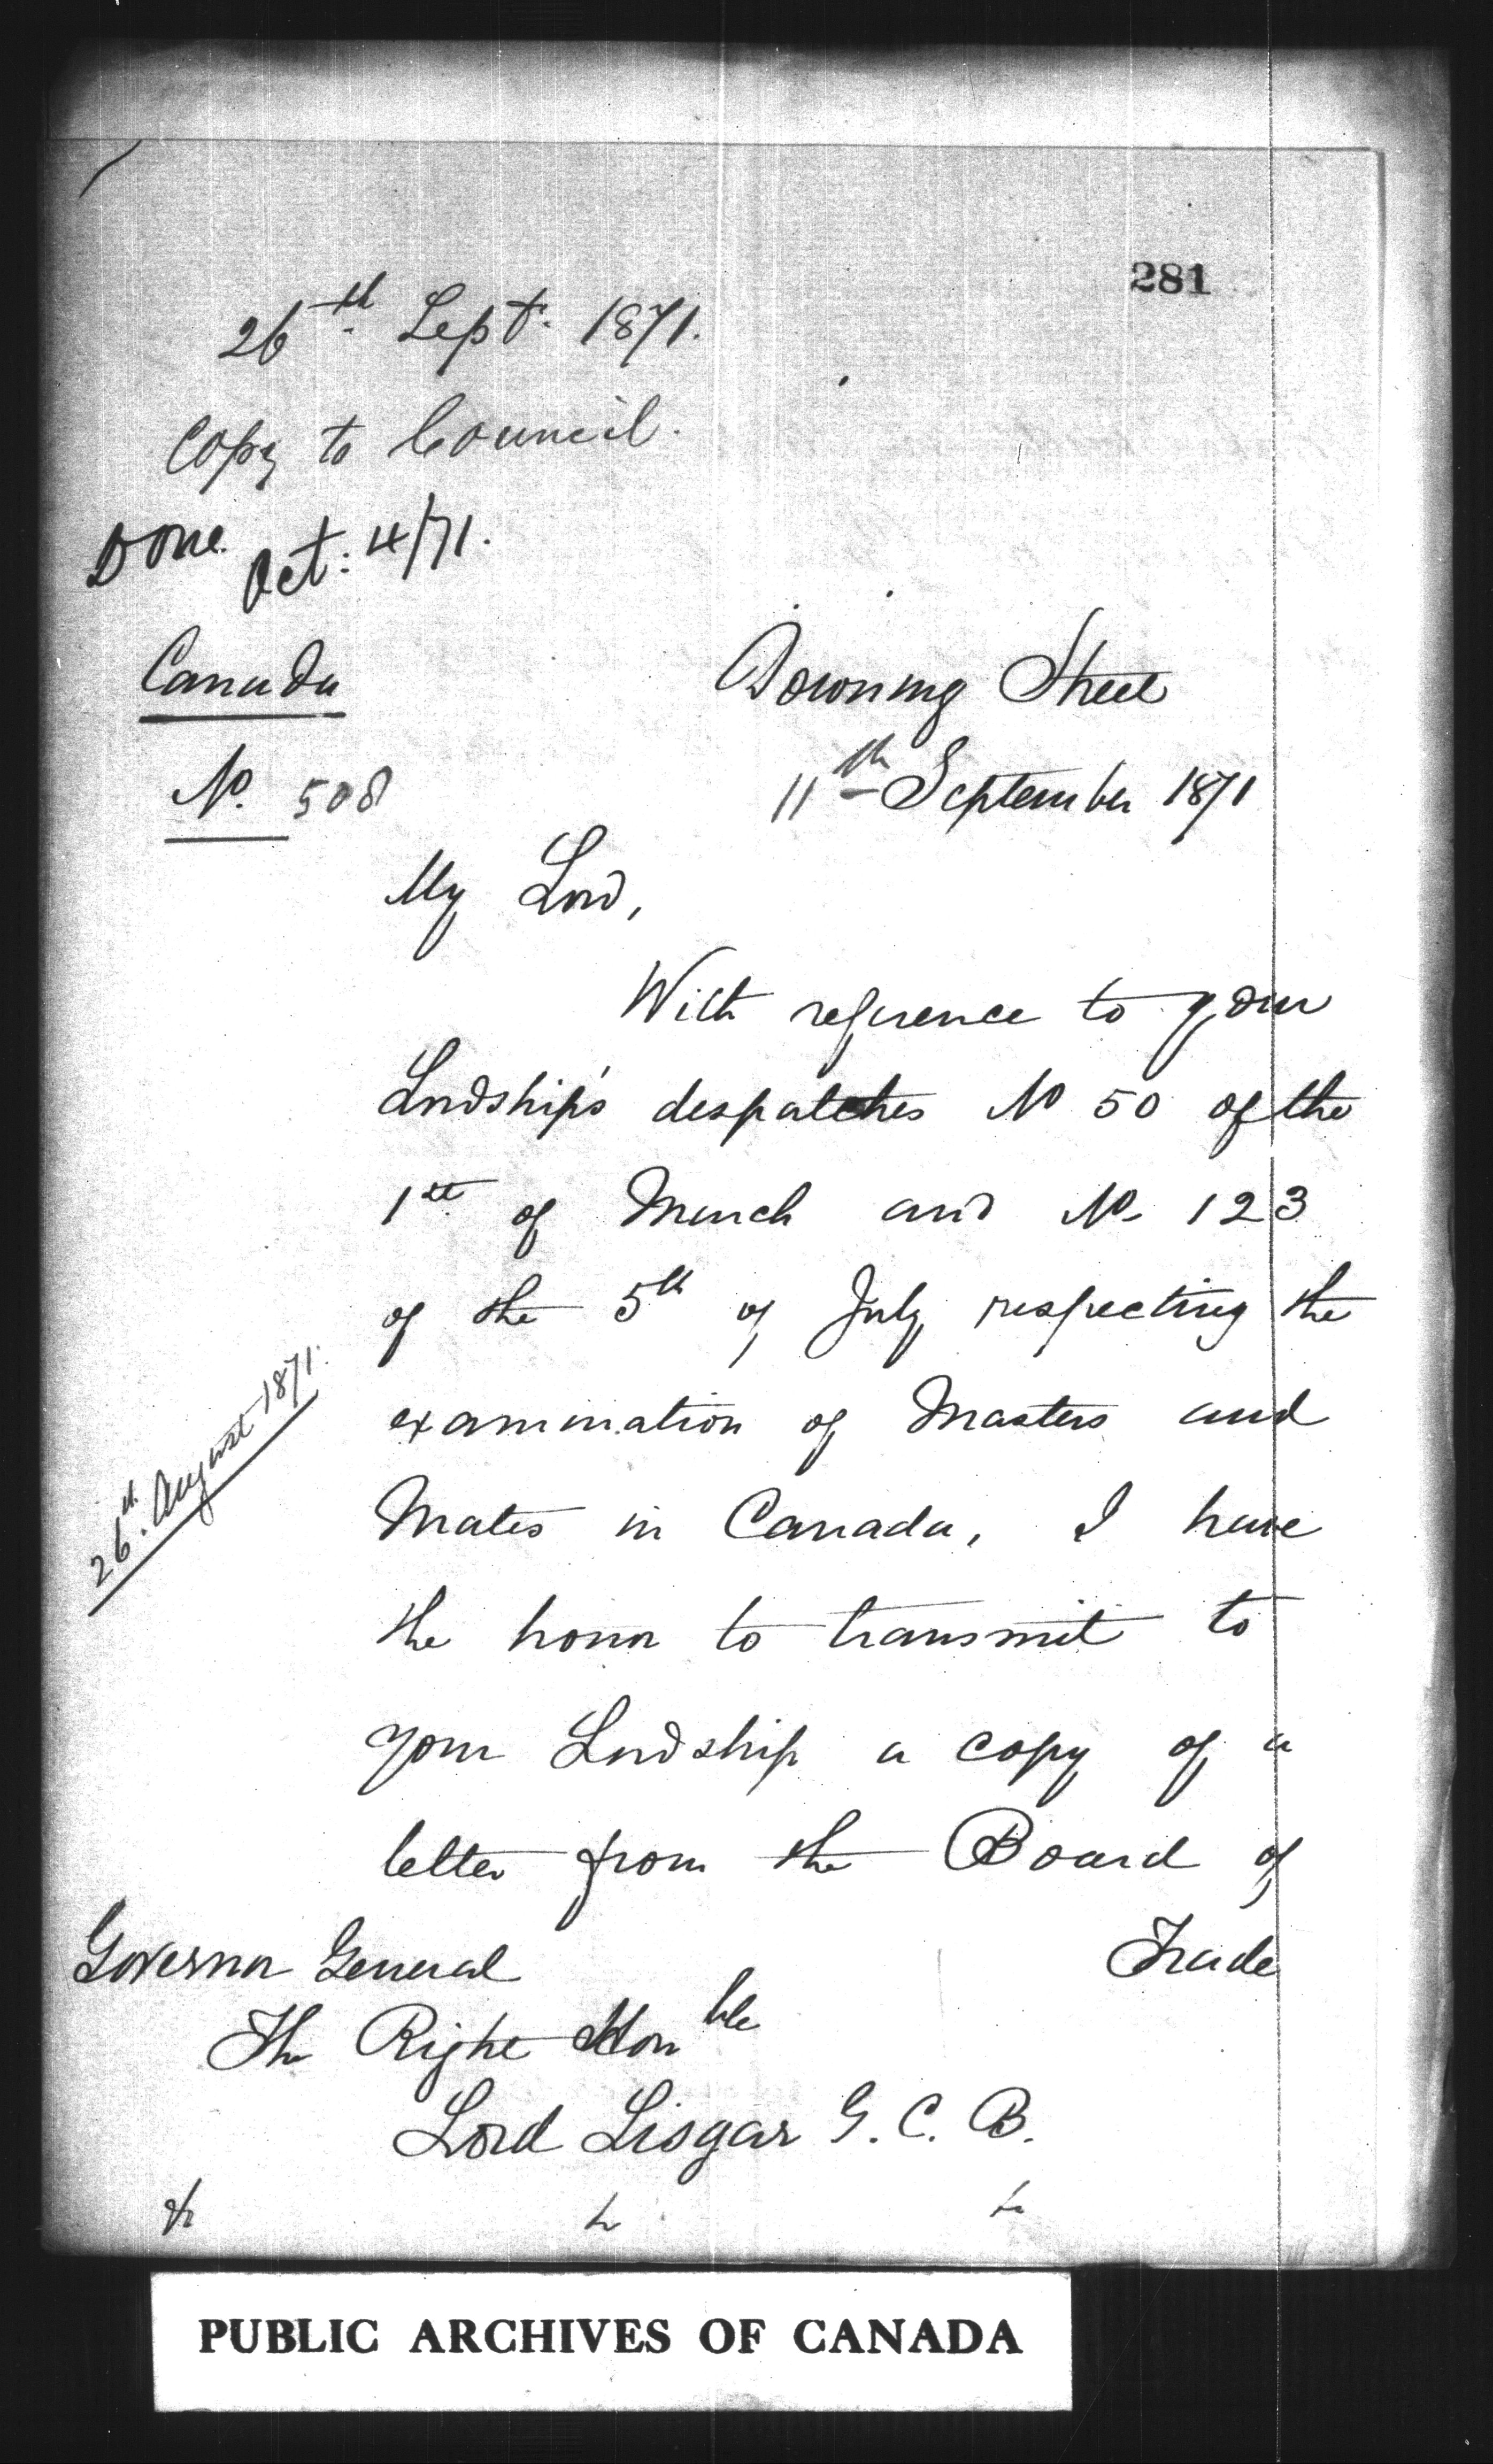 281
26th Sept. 1871.
Copy to Council.
Done. Oct: 4/71.
Canada
Downing Street
No. 508
11th September 1871
My Lord,
With reference to your
Lordship's despatches No 50 of the
1st of March and No. 123
of the 5th of July respecting the
26th. August 1871.
examination of Masters and
Mates in Canada, I have
the honor to transmit to
your Lordship a copy of a
letter from the Board of
Trade
Governor General
The Right Honble
Lord Lisgar G. C. B.
&c &c &c
PUBLIC ARCHIVES OF CANADA